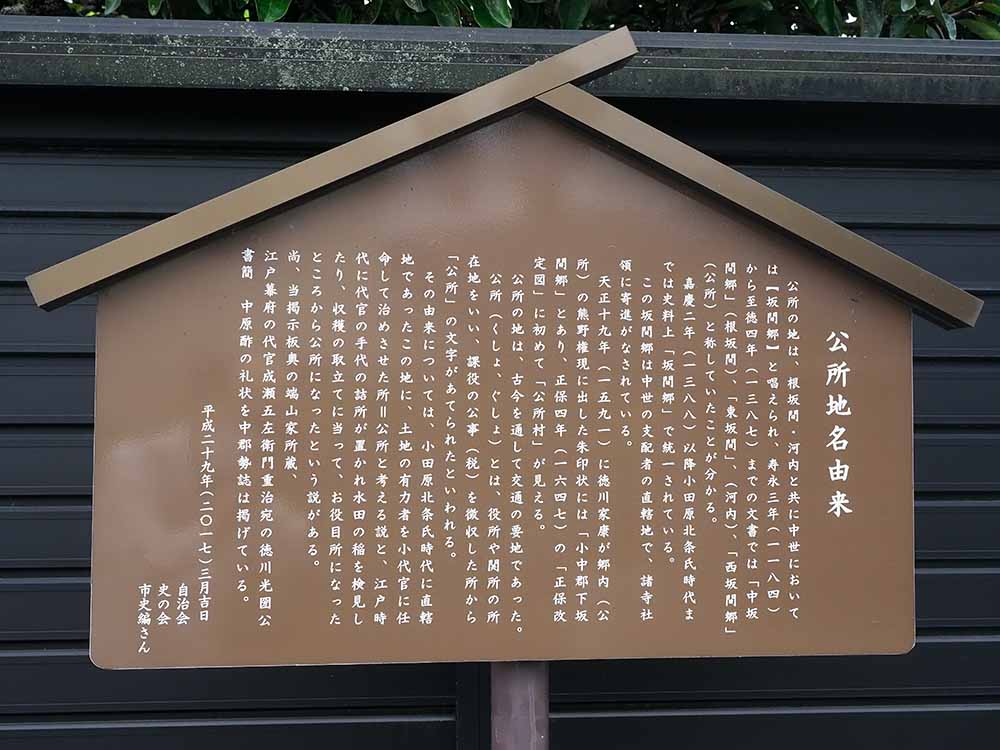 公所地名由来
公所の地は、根坂間・河内と共に中世において
は【坂間郷】と唱えられ、寿永三年(一一八四)
から至徳四年(一三八七)までの文書では「中坂
間郷」(根坂間)、「東坂間」、(河内)、「西坂間郷」
(公所)と称していたことが分かる。
嘉慶二年(一三八八)以降小田原北条氏時代ま
では史料上「坂間郷」で統一されている。
この坂間郷は中世の支配者の直轄地で、諸寺社
領に寄進がなされている。
天正十九年(一五九一)に徳川家康が郷内(公
所)の熊野権現に出した朱印状には「小中郡下坂
間郷」とあり、正保四年(一六四七)の「正保改
定図」に初めて「公所村」が見える。
公所の地は、古今を通して交通の要地であった。
公所(くしょ、ぐしょ)とは、役所や関所の所
在地をいい、課役の公事(税)を徴収した所から
「公所」の文字があてられたといわれる。
その由来については、小田原北条氏時代に直轄
地であったこの地に、土地の有力者を小代官に任
命して治めさせた所＝公所と考える説と、江戸時
代に代官の手代の詰所が置かれ水田の稲を検見し
たり、収穫の取立てに当って、お役目所になった
ところから公所になったという説がある。
尚、当掲示板奥の端山家所蔵、
江戸幕府の代官成瀬五左衛門重治宛の徳川光圀公
書簡 中原酢の礼状を中郡勢誌は掲げている。
平成二十九年(二〇一七)三月吉日
自治会
史の会
市史編さん